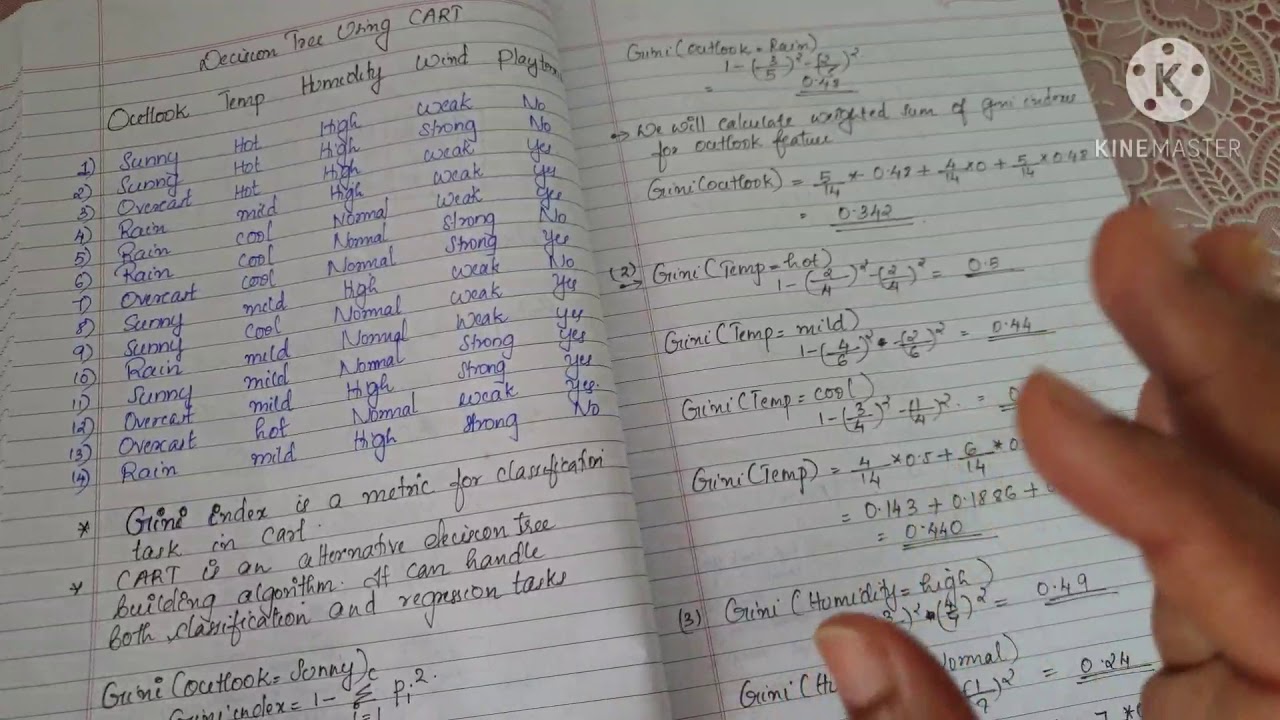 Decision Tree Using CART
Outlook Temp Humidity Wind Play
1) Sunny Hot High weak No
2) Sunny Hot High strong No
3) Overcast Hot High weak Yes
4) Rain mild High weak Yes
5) Rain cool Normal weak Yes
6) Rain cool Normal Strong No
7) Overcast cool Normal Strong Yes
8) Sunny mild High weak No
9) Sunny cool Normal weak Yes
10) Rain mild Normal weak yes
11) Sunny mild Normal Strong Yes
12) Overcast mild High strong Yes
13) Overcast hot Normal weak Yes.
14) Rain mild High strong No
* Gini index is a metric for classification
task in Cart.
* CART is an alternative decision tree
building algorithm. It can handle
both classification and regression tasks
Gini(outlook = Sunny)
Gini index = 1 - c Σ i=1 Pi².
Gini(outlook = Rain)
1-(3/5)²-(2/5)²
= 0.48
⇒ We will calculate weighted sum of gini indexes
for outlook feature
Gini(outlook) = 5/14 × 0.48 + 4/14 × 0 + 5/14 × 0.48
= 0.342
(2) Gini(Temp = hot)
1-(2/4)²-(2/4)² = 0.5
Gini(Temp = mild)
1-(4/6)²-(2/6)² = 0.44
Gini(Temp = cool)
1-(3/4)²-(1/4)². =
Gini(Temp) = 4/14 * 0.5 + 6/14 * 0
= 0.143 + 0.1886 +
= 0.440
(3) Gini(Humidity = high)
= 0.49
(1/7)² = 0.24
K
KINEMASTER